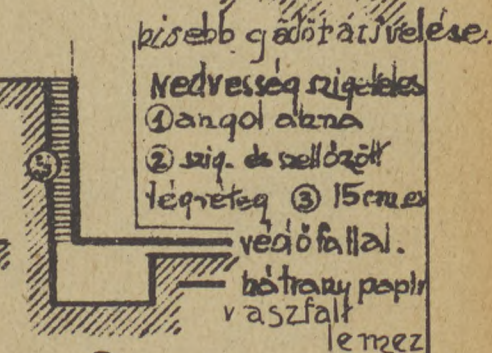 kisebb gödör átívelése.
Nedvesség szigetelés
① angol akna
② szig. és szellőzött
légréteg ③ 15 cm es
védőfallal.
kátrány papír
v aszfalt
lemez